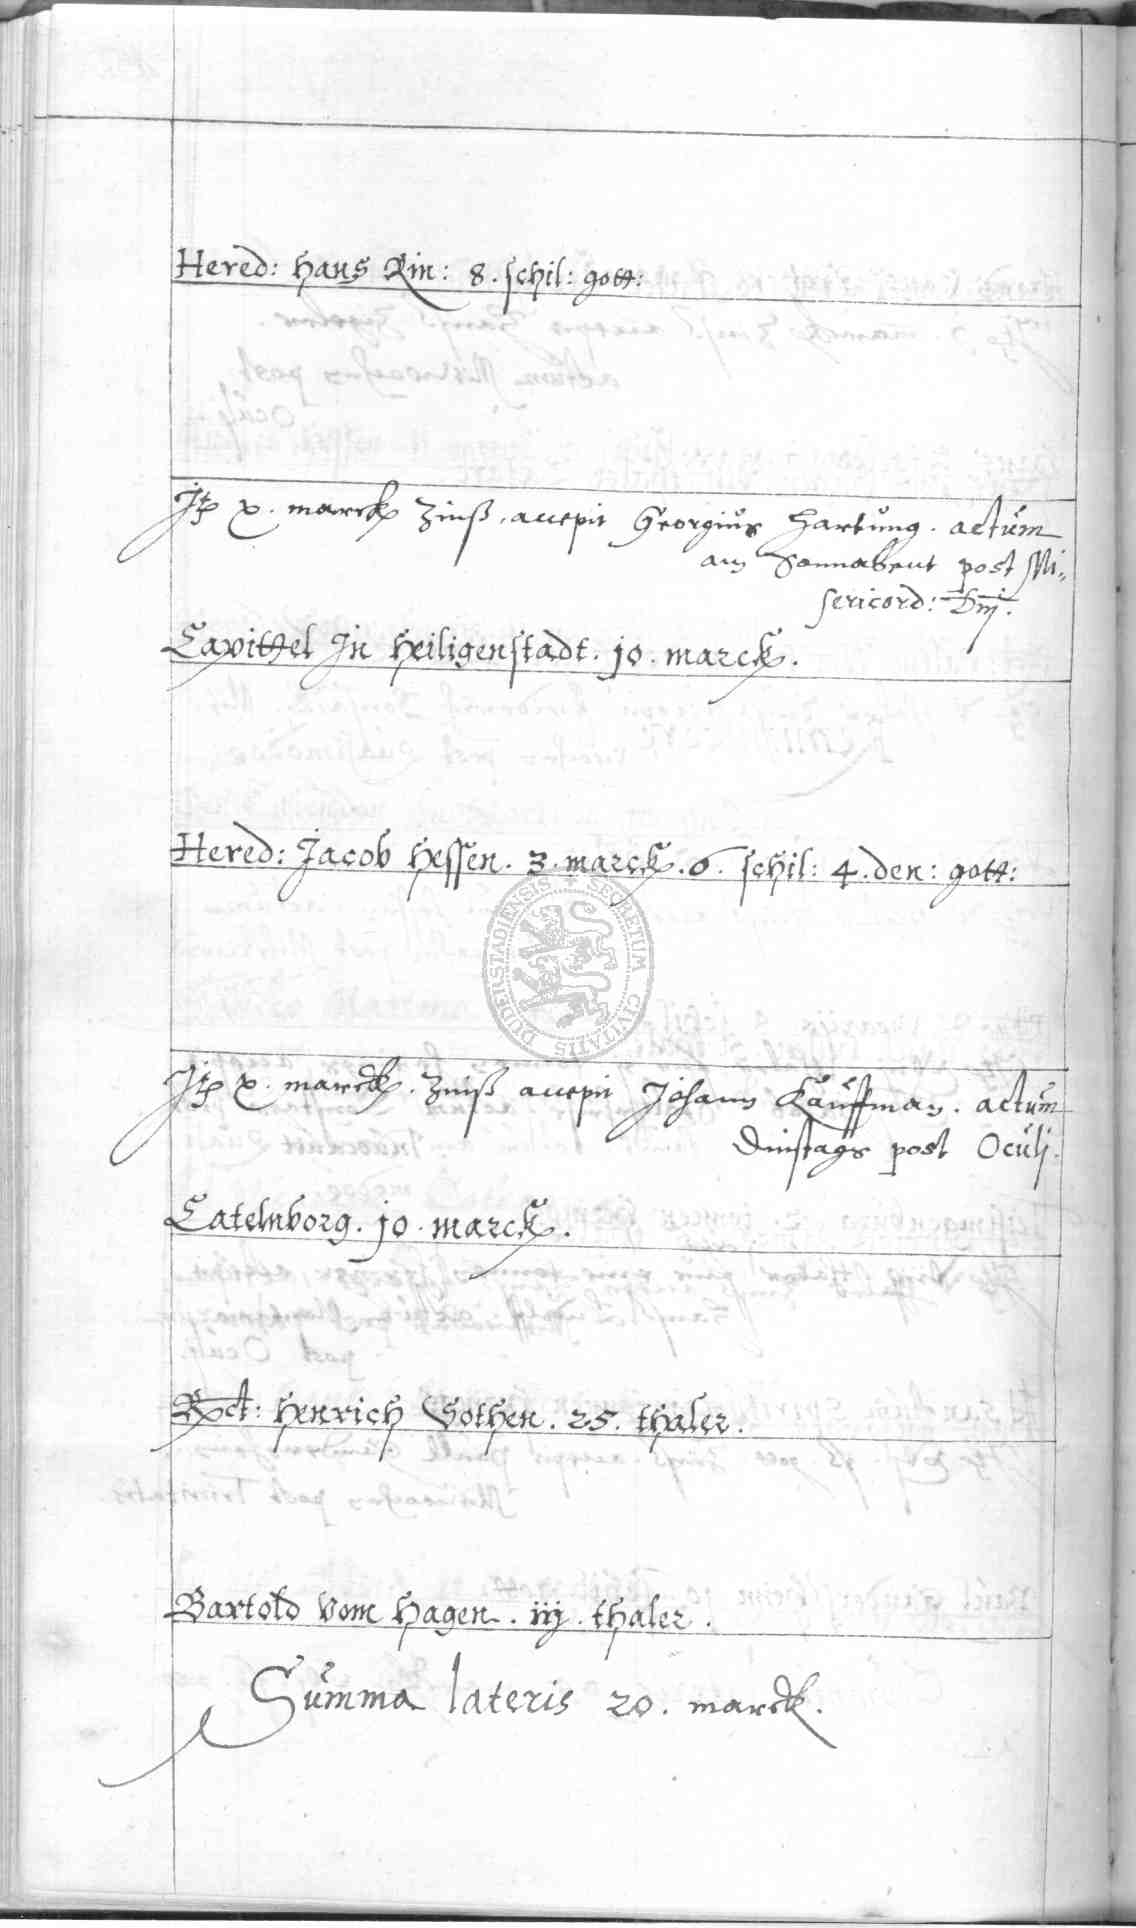 Hered: Hans Rin: 8. schil: gott:
Jtem x. marck Zinß, accepit Georgius Hartung. actum
am Sonnabent post Mi„
sericord: Dnj.
Capittel Jn Heiligenstadt. jo. marck.
Hered: Jacob Hessen. 3. marck. 6. schil: 4. den: gott:
SECRETUM CIVITATIS DUDERSTADIENSIS
Jtem x. marck. Zinß accepit Johann Kauffman. actum
Dinstags post Oculj.
Catelnborg. jo. marck.
Henrich Gothen. 25. thaler.
Bartold vom Hagen. iij. thaler.
Summa lateris 20. marck.